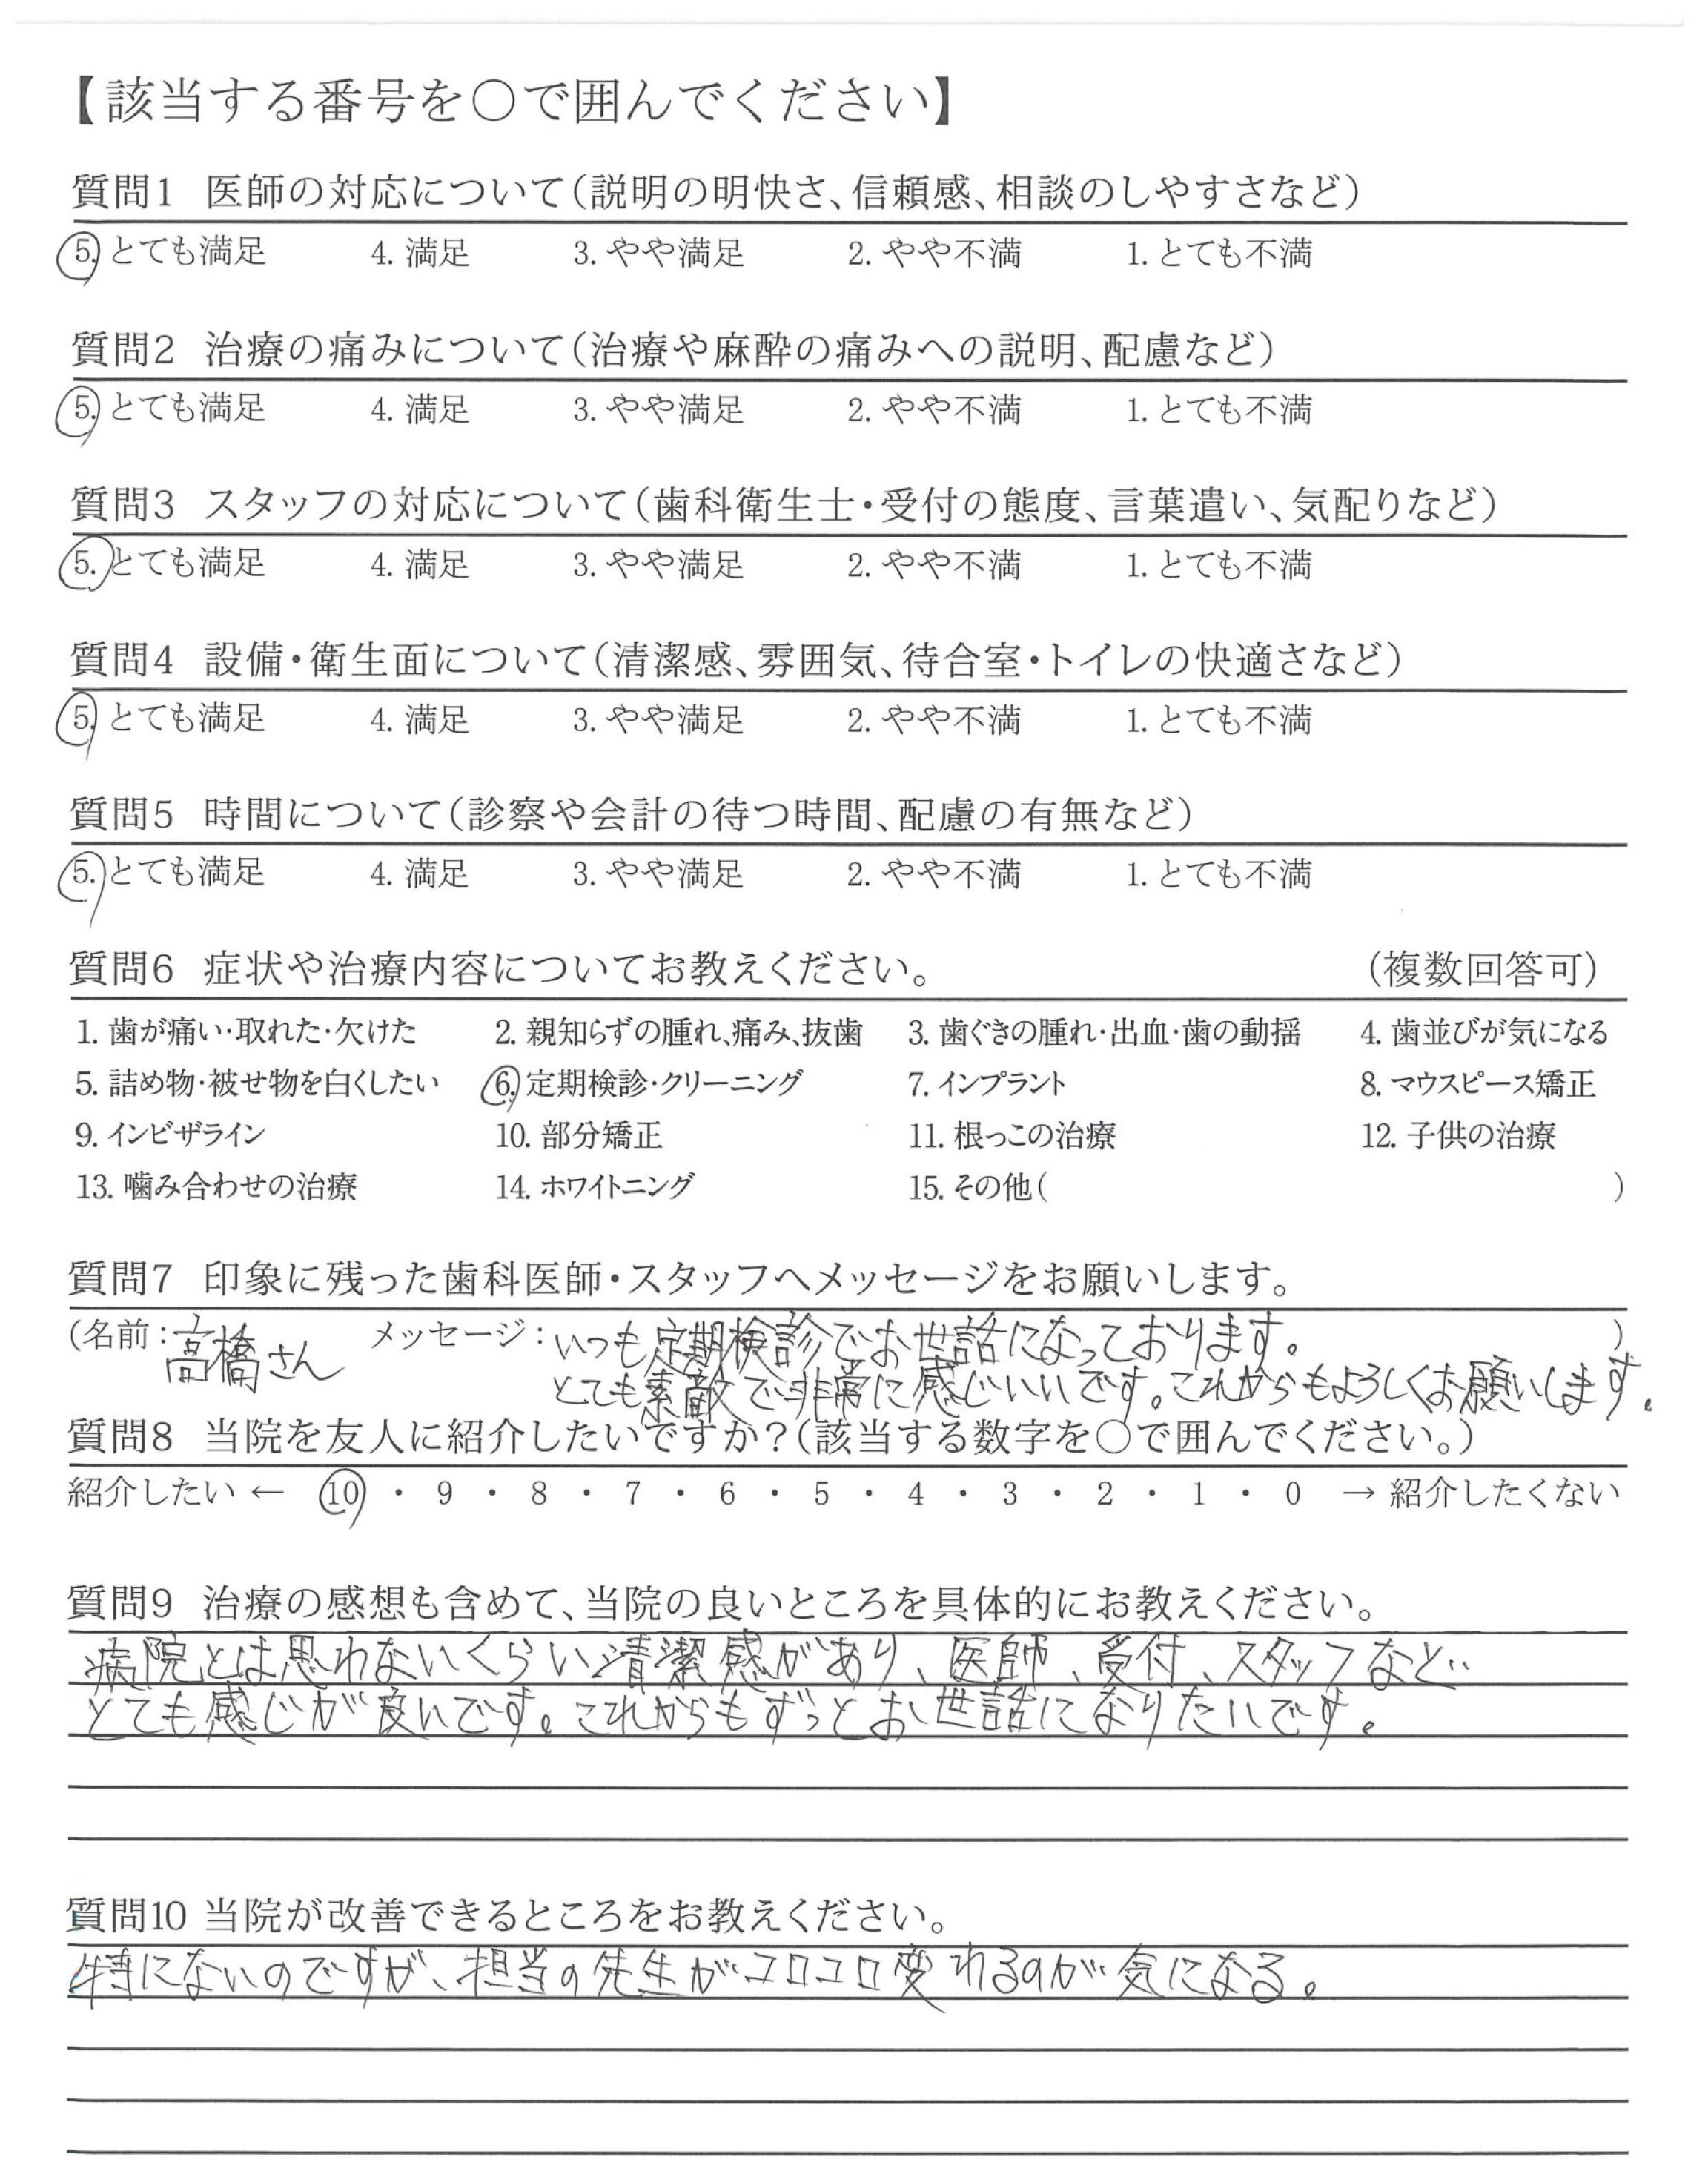 【該当する番号を○で囲んでください】
質問1 医師の対応について(説明の明快さ、信頼感、相談のしやすさなど)
5. とても満足 4. 満足 3. やや満足 2. やや不満 1. とても不満
質問2 治療の痛みについて(治療や麻酔の痛みへの説明、配慮など)
5. とても満足 4. 満足 3. やや満足 2. やや不満 1. とても不満
質問3 スタッフの対応について(歯科衛生士・受付の態度、言葉遣い、気配りなど)
5. とても満足 4. 満足 3. やや満足 2. やや不満 1. とても不満
質問4 設備・衛生面について(清潔感、雰囲気、待合室・トイレの快適さなど)
5. とても満足 4. 満足 3. やや満足 2. やや不満 1. とても不満
質問5 時間について(診察や会計の待つ時間、配慮の有無など)
5. とても満足 4. 満足 3. やや満足 2. やや不満 1. とても不満
質問6 症状や治療内容についてお教えください。 (複数回答可)
1. 歯が痛い・取れた・欠けた 2. 親知らずの腫れ、痛み、抜歯 3. 歯ぐきの腫れ・出血・歯の動揺 4. 歯並びが気になる
5. 詰め物・被せ物を白くしたい 6. 定期検診・クリーニング 7. インプラント 8. マウスピース矯正
9. インビザライン 10. 部分矯正 11. 根っこの治療 12. 子供の治療
13. 噛み合わせの治療 14. ホワイトニング 15. その他( )
質問7 印象に残った歯科医師・スタッフへメッセージをお願いします。
(名前:高橋さん メッセージ:いつも定期検診でお世話になっております。 )
とても素敵で非常に感じいいです。これからもよろしくお願いします。
質問8 当院を友人に紹介したいですか?(該当する数字を○で囲んでください。)
紹介したい ← 10 ・ 9 ・ 8 ・ 7 ・ 6 ・ 5 ・ 4 ・ 3 ・ 2 ・ 1 ・ 0 → 紹介したくない
質問9 治療の感想も含めて、当院の良いところを具体的にお教えください。
病院とは思わないくらい清潔感があり、医師、受付、スタッフなど
とても感じが良いです。これからもずっとお世話になりたいです。
質問10 当院が改善できるところをお教えください。
特にないのですが、担当の先生がコロコロ変わるのが気になる。